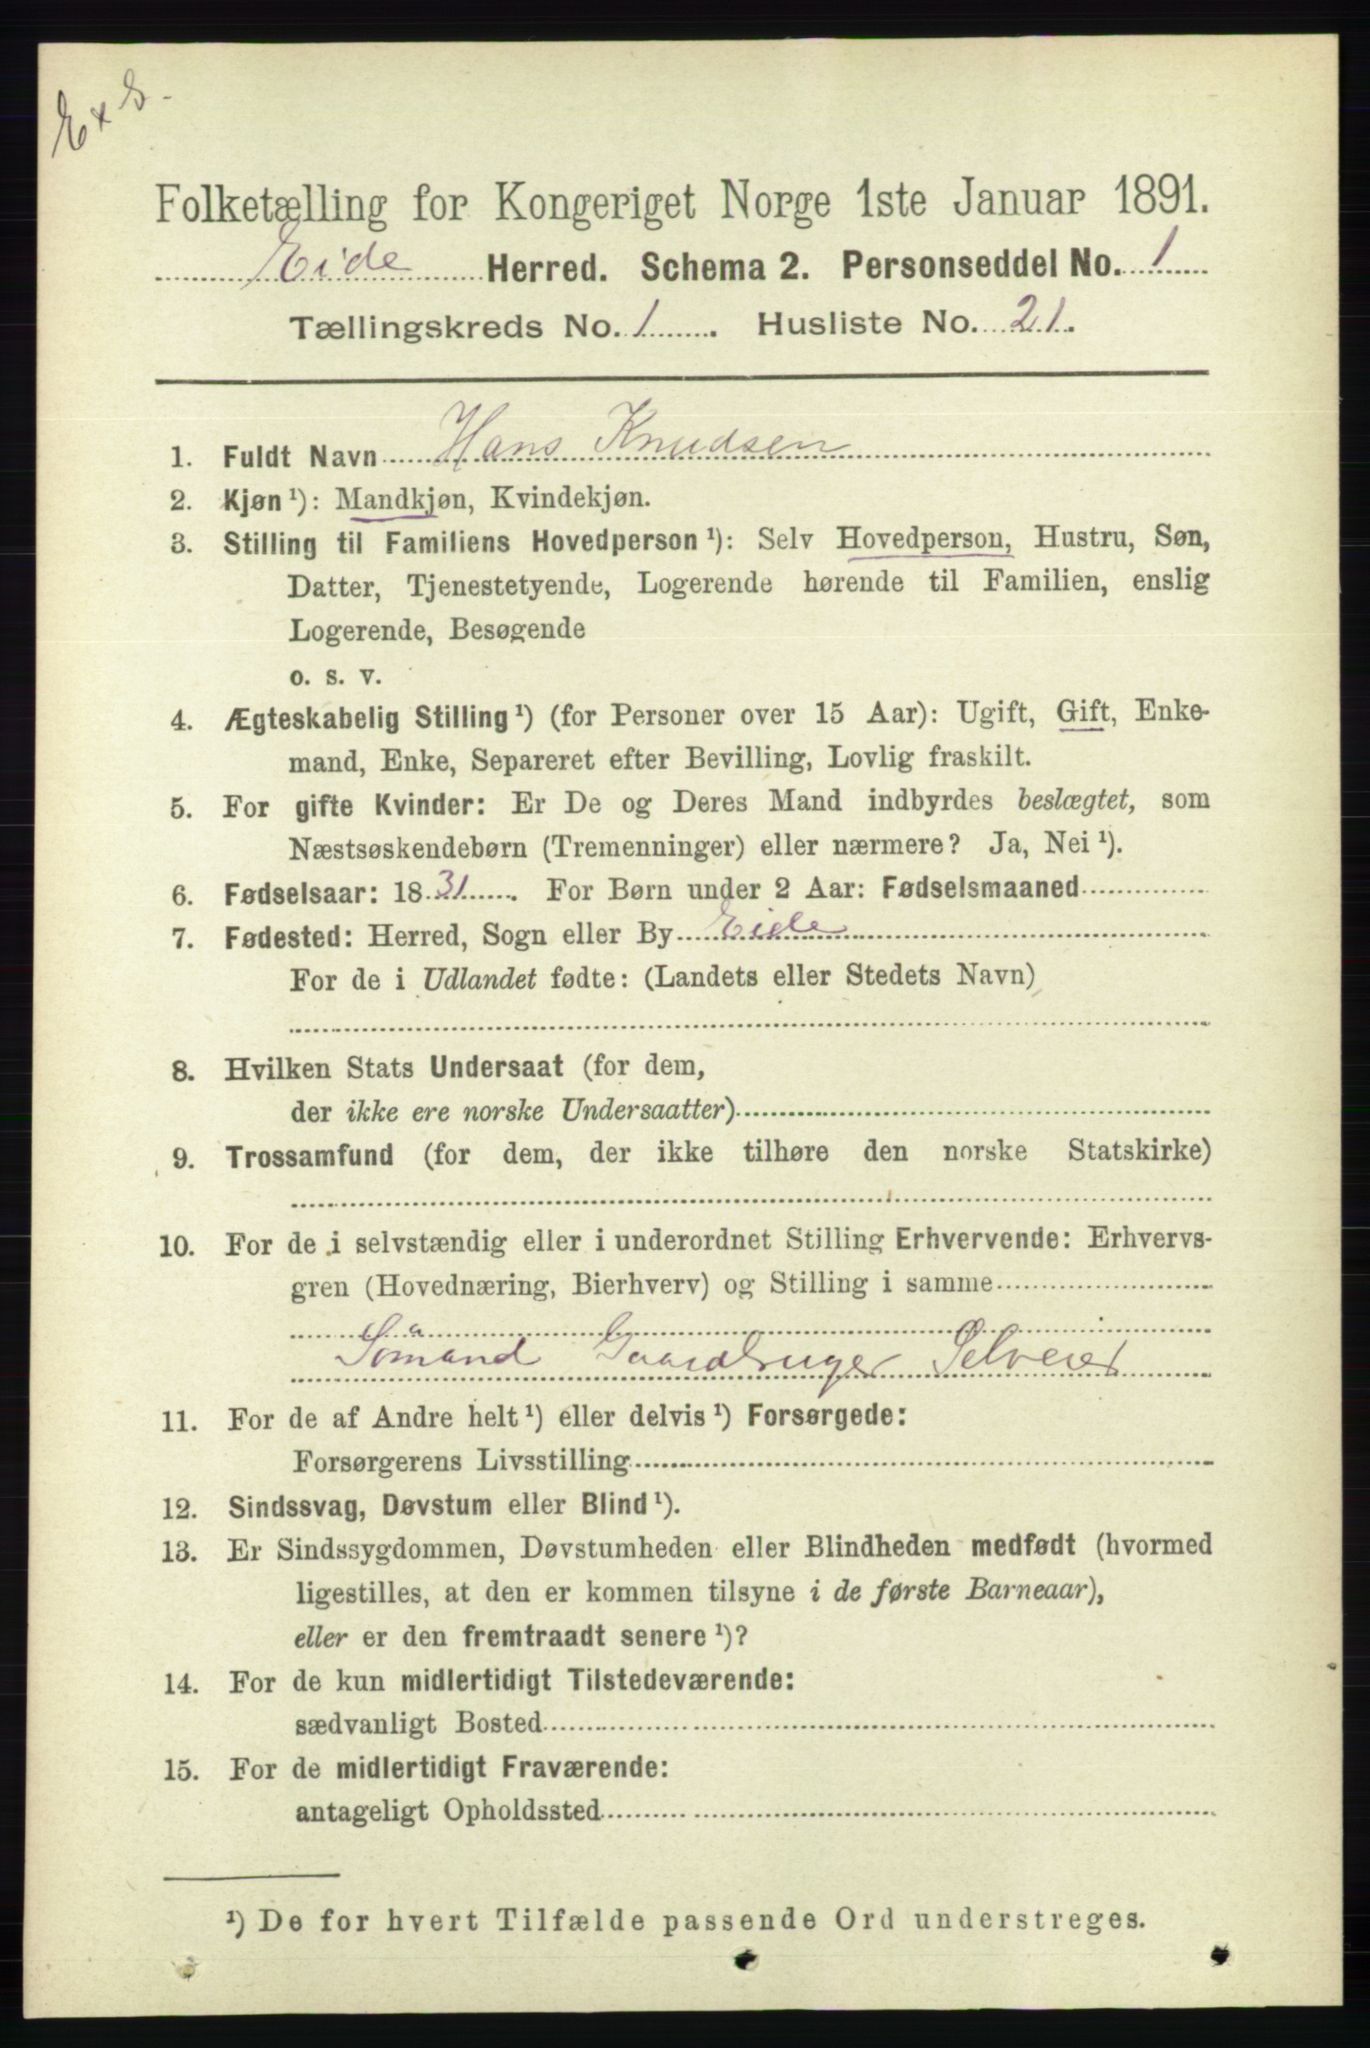 E x S.
Folketælling for Kongeriget Norge 1ste Januar 1891.
Eide Herred. Schema 2. Personseddel No. 1
Tællingskreds No. 1. Husliste No. 21.
1. Fuldt Navn Hans Knudsen
2. Kjøn ¹): Mandkjøn, Kvindekjøn.
3. Stilling til Familiens Hovedperson ¹): Selv Hovedperson, Hustru, Søn,
Datter, Tjenestetyende, Logerende hørende til Familien, enslig
Logerende, Besøgende
o. s. v.
4. Ægteskabelig Stilling ¹) (for Personer over 15 Aar): Ugift, Gift, Enke-
mand, Enke, Separeret efter Bevilling, Lovlig fraskilt.
5. For gifte Kvinder: Er De og Deres Mand indbyrdes beslægtet, som
Næstsøskendebørn (Tremenninger) eller nærmere? Ja, Nei ¹).
6. Fødselsaar: 1831. For Børn under 2 Aar: Fødselsmaaned
7. Fødested: Herred, Sogn eller By Eide
For de i Udlandet fødte: (Landets eller Stedets Navn)
8. Hvilken Stats Undersaat (for dem,
der ikke ere norske Undersaatter)
9. Trossamfund (for dem, der ikke tilhøre den norske Statskirke)
10. For de i selvstændig eller i underordnet Stilling Erhvervende: Erhvervs-
gren (Hovednæring, Bierhverv) og Stilling i samme
Sømand Gaardbruger Selveier
11. For de af Andre helt ¹) eller delvis ¹) Forsørgede:
Forsørgerens Livsstilling
12. Sindssvag, Døvstum eller Blind ¹).
13. Er Sindssygdommen, Døvstumheden eller Blindheden medfødt (hvormed
ligestilles, at den er kommen tilsyne i de første Barneaar),
eller er den fremtraadt senere ¹)?
14. For de kun midlertidigt Tilstedeværende:
sædvanligt Bosted
15. For de midlertidigt Fraværende:
antageligt Opholdssted
¹) De for hvert Tilfælde passende Ord understreges.